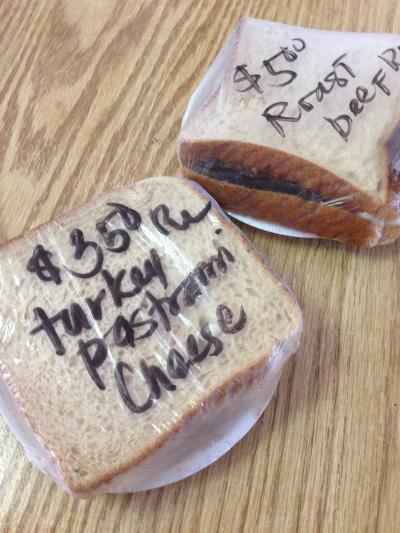 $5 00
Roast
beef
$3 50
turkey
pastrami
Chaese